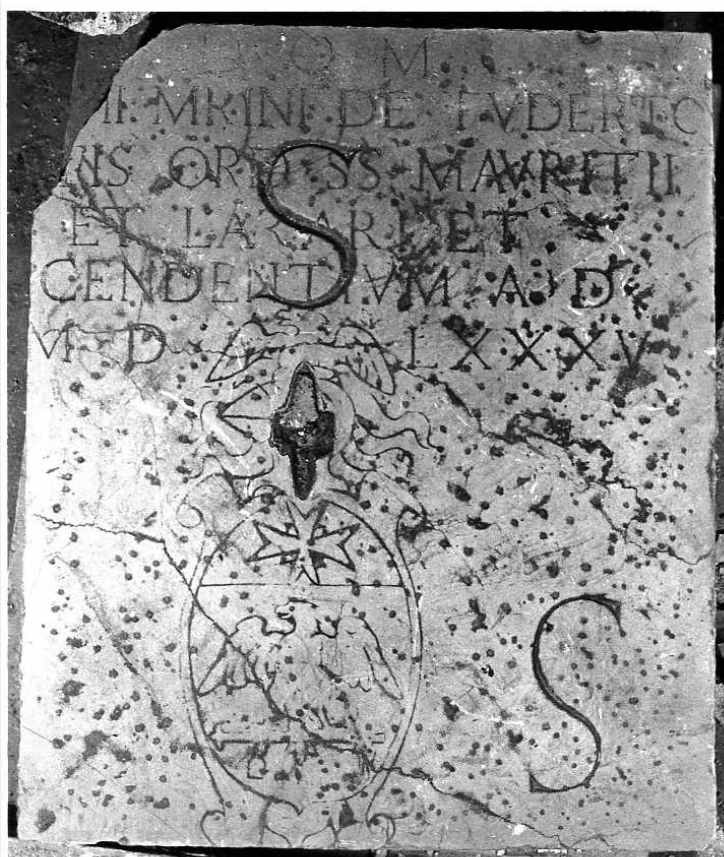 M
II MRINI DE FVDERTO
RIS ORD SS MAVRITII
ET LAZARI ET
CENDENTIVM A D
M D LXXXXV
S
S